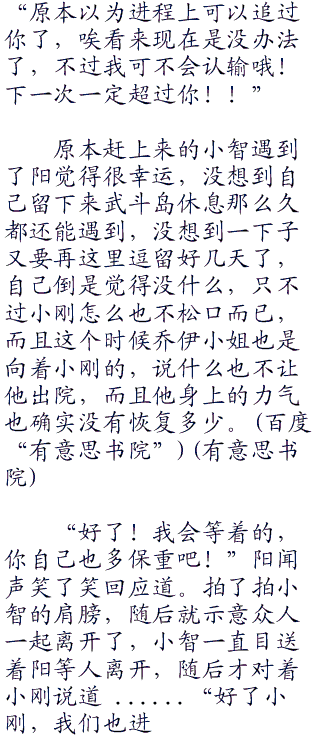 “原本以为进程上可以追过
你了，唉看来现在是没办法
了，不过我可不会认输哦！
下一次一定超过你！！”
原本赶上来的小智遇到
了阳觉得很幸运，没想到自
己留下来武斗岛休息那么久
都还能遇到，没想到一下子
又要再这里逗留好几天了，
自己倒是觉得没什么，只不
过小刚怎么也不松口而已，
而且这个时候乔伊小姐也是
向着小刚的，说什么也不让
他出院，而且他身上的力气
也确实没有恢复多少。(百度
“有意思书院”)(有意思书
院)
“好了！我会等着的，
你自己也多保重吧！”阳闻
声笑了笑回应道。拍了拍小
智的肩膀，随后就示意众人
一起离开了，小智一直目送
着阳等人离开，随后才对着
小刚说道 ......“好了小
刚，我们也进